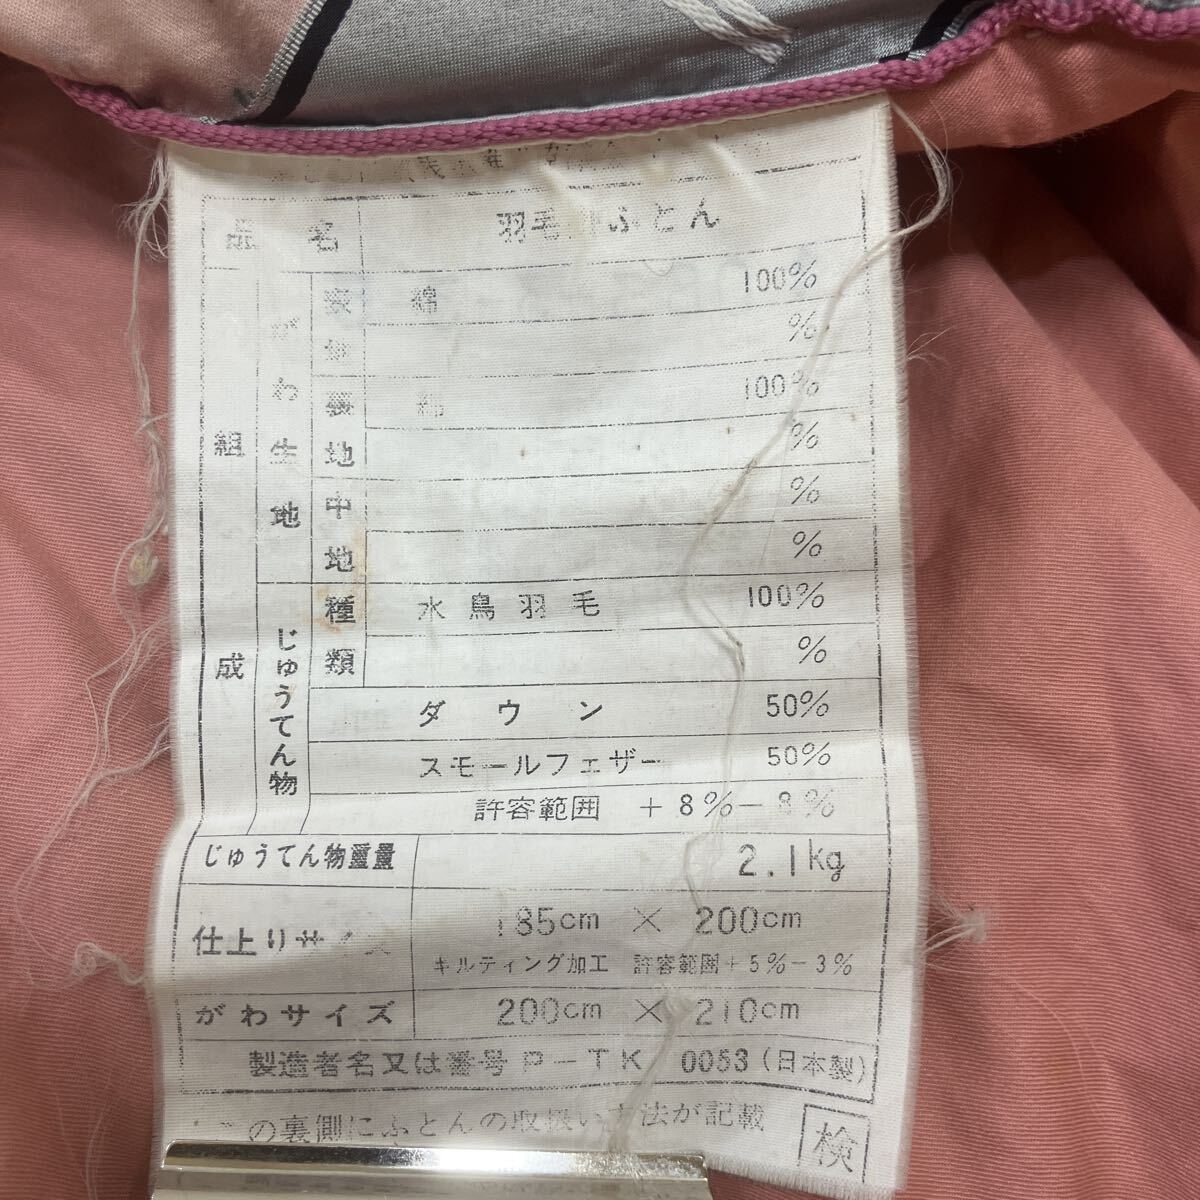 品名 羽毛掛ふとん
組成
がわ生地
表地 綿 100%
%
裏地 綿 100%
%
中地 %
%
じゅうてん物
種類 水鳥羽毛 100%
%
ダウン 50%
スモールフェザー 50%
許容範囲 +8%-8%
じゅうてん物重量 2.1kg
仕上りサイズ 185cm × 200cm
キルティング加工 許容範囲+5%-3%
がわサイズ 200cm × 210cm
製造者名又は番号 P-TK 0053(日本製)
この裏側にふとんの取扱い方法が記載
検